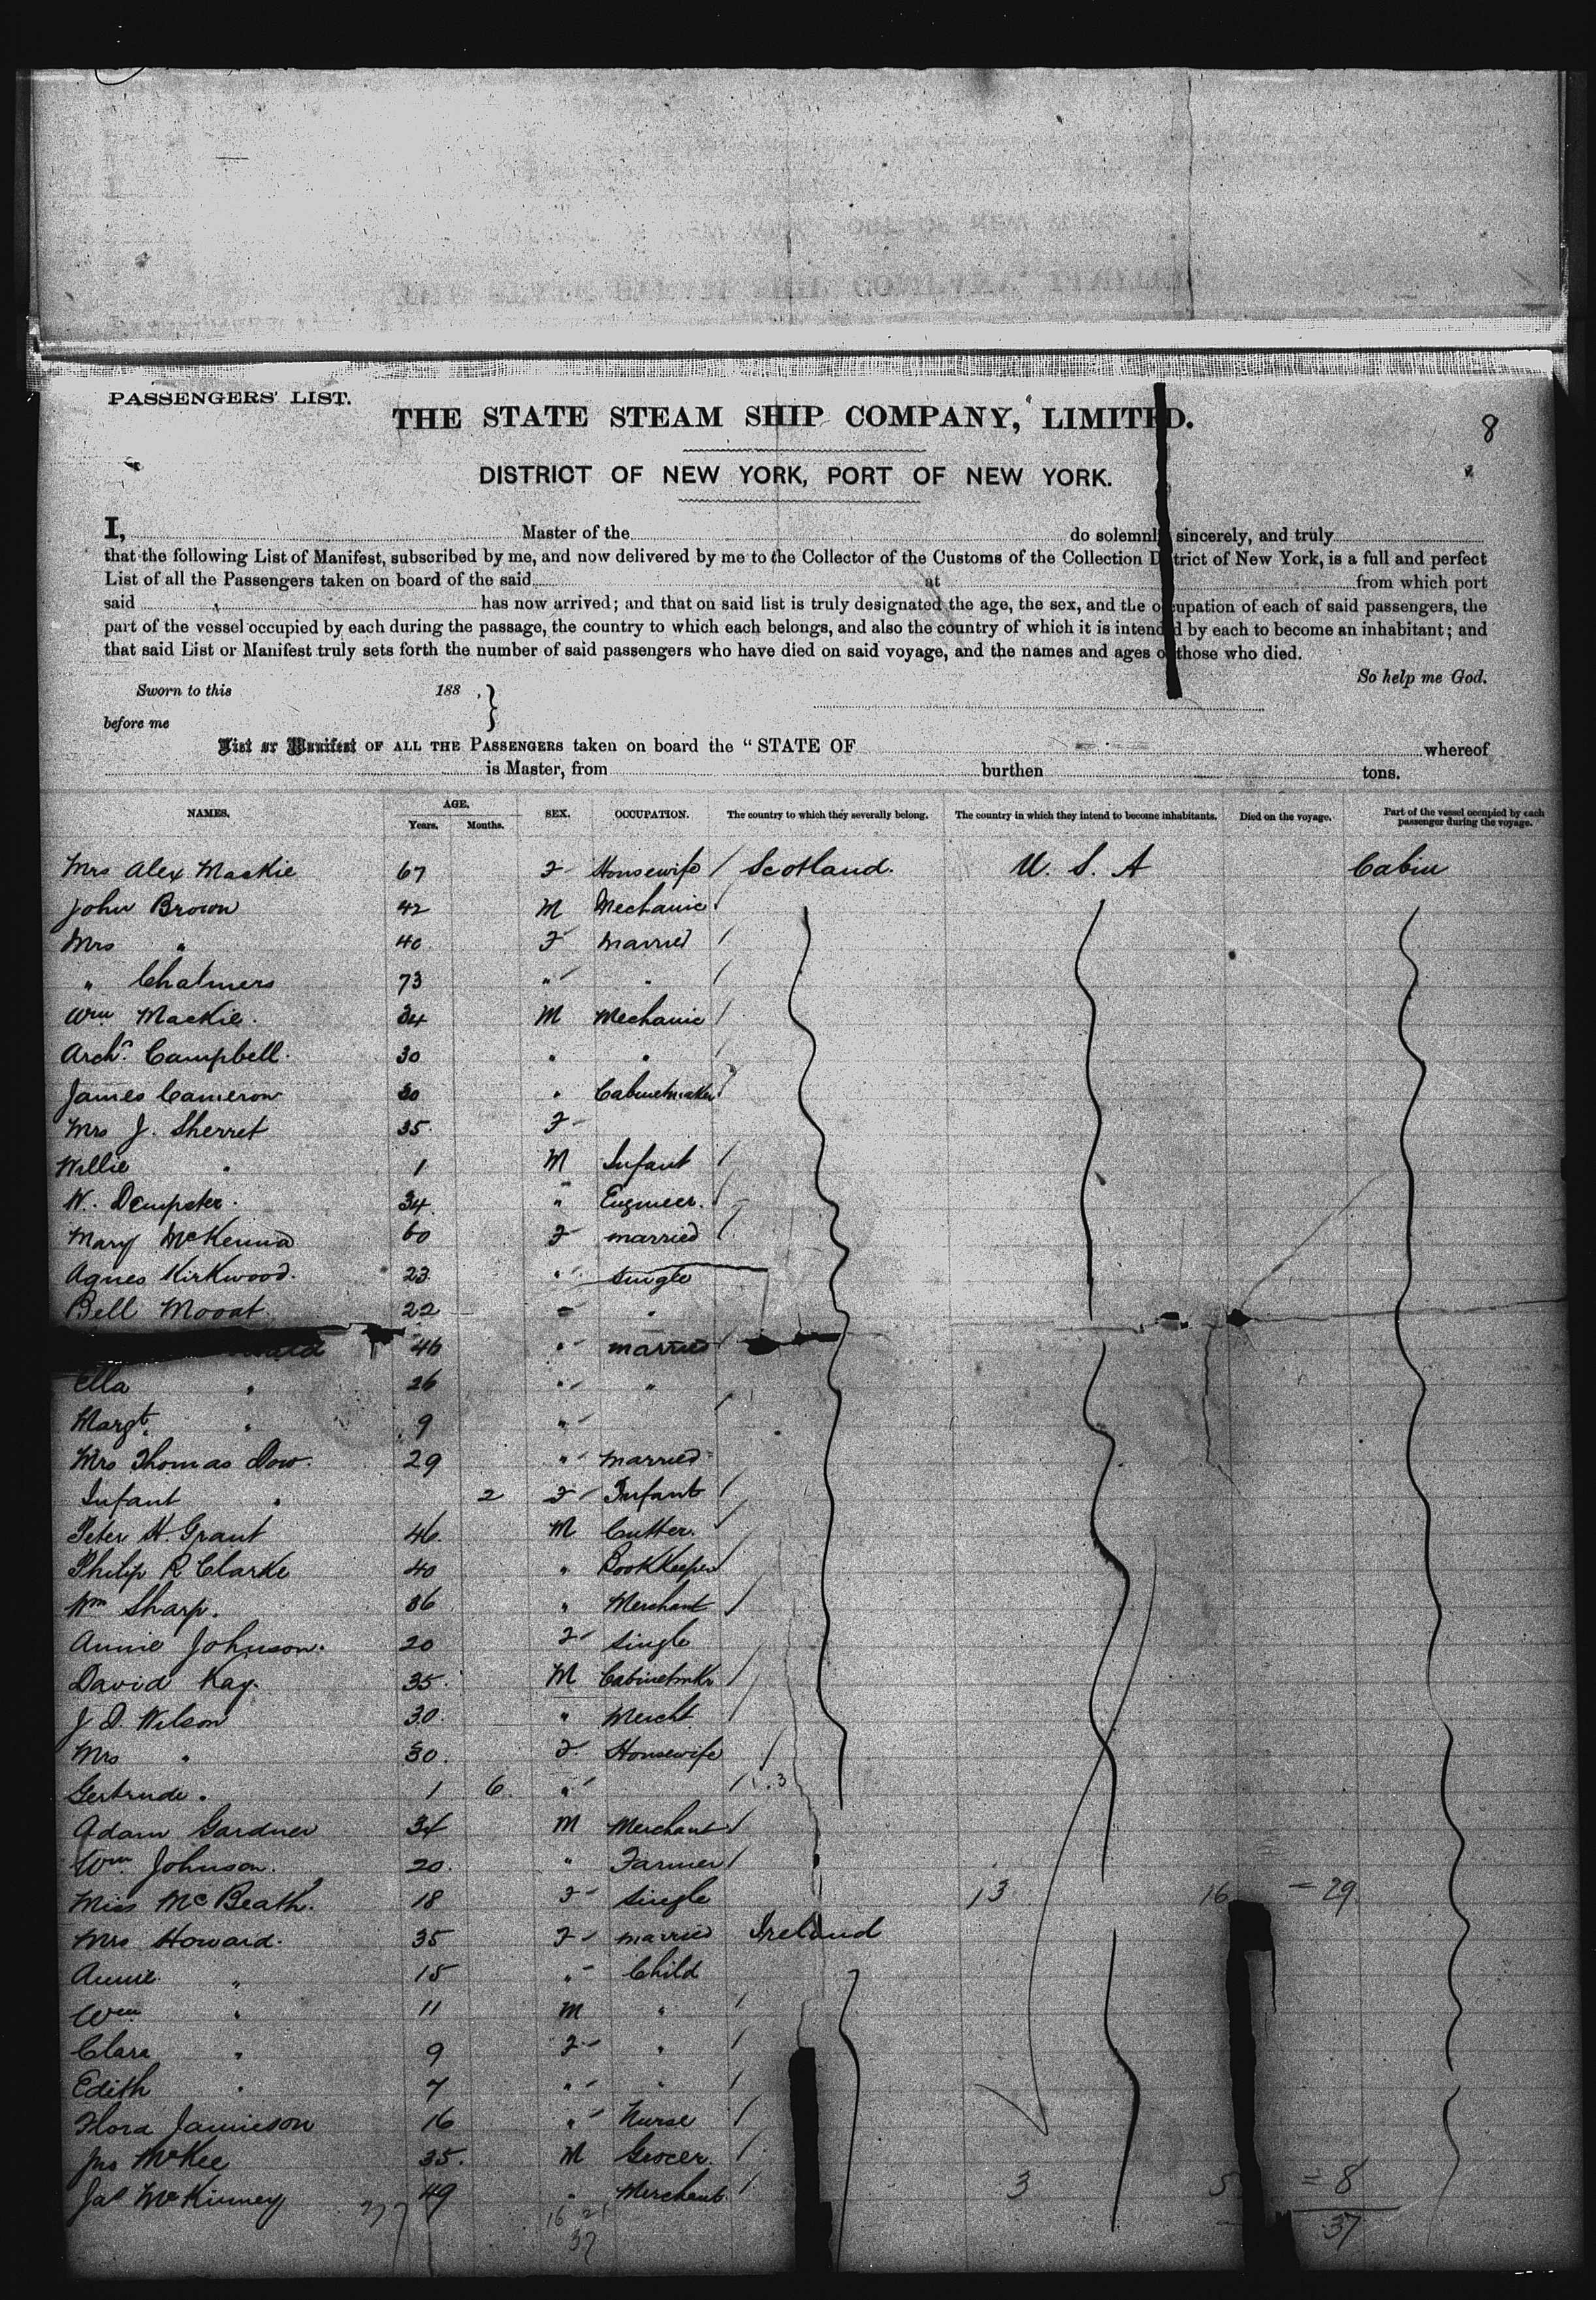 8
PASSENGERS' LIST.
THE STATE STEAM SHIP COMPANY, LIMITED.
DISTRICT OF NEW YORK, PORT OF NEW YORK.
I, Master of the do solemnly, sincerely, and truly
that the following List of Manifest, subscribed by me, and now delivered by me to the Collector of the Customs of the Collection District of New York, is a full and perfect
List of all the Passengers taken on board of the said at from which port
said has now arrived; and that on said list is truly designated the age, the sex, and the occupation of each of said passengers, the
part of the vessel occupied by each during the passage, the country to which each belongs, and also the country of which it is intended by each to become an inhabitant; and
that said List or Manifest truly sets forth the number of said passengers who have died on said voyage, and the names and ages of those who died.
So help me God.
Sworn to this 188 .
before me
List or Manifest OF ALL THE PASSENGERS taken on board the "STATE OF whereof
is Master, from burthen tons.
NAMES. AGE. Years. Months. SEX. OCCUPATION. The country to which they severally belong. The country in which they intend to become inhabitants. Died on the voyage. Part of the vessel occupied by each passenger during the voyage.
Mrs Alex Mackie 67 F Housewife / Scotland. U. S. A Cabin
John Brown 42 M Mechanic /
Mrs " 40 F married /
" Chalmers 73 " " /
Wm Mackie. 34 M Mechanic /
Archd. Campbell. 30 " " /
James Cameron 30 " Cabinetmaker /
Mrs J. Sherret 35. F
Willie " 1 M Infant /
W. Dempster. 34. " Engineer. /
Mary McKenna 60 F married /
Agnes Kirkwood. 23 " single
Bell Mooat 22 " "
46 " married /
Ella " 26 " "
Margt. " 9 " /
Mrs Thomas Dow. 29 " married
Infant " 2 F Infant /
Peter H. Grant 46. M Cutter. /
Philip R Clarke 40 " Bookkeeper /
Wm Sharp. 36 " Merchant /
Annie Johnson. 20 F single
David Kay. 35. M Cabinetmkr /
J D. Wilson 30. " Mercht /
Mrs " 30. F Housewife /
Gertrude " 1 6. " / 1.3
Adam Gardner 34 M Merchant /
Wm Johnson. 20. " Farmer /
Miss McBeath. 18 F single 13 16 = 29
Mrs Howard. 35 F married Ireland
Annie " 15 " Child
Wm " 11 M " /
Clara " 9 F " /
Edith " 7 " " /
Flora Jamieson 16 " Nurse /
Jno McKee 35. M Grocer. /
Jas McKinney 49 " Merchant / 3 5 = 8
37 16 21 37
37